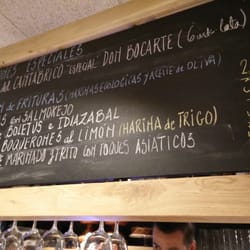 ONES ESPECIALES
DEL CANTÁBRICO "ESPECIAL" DON BOCARTE (Gurb lata)
N DE FRITURAS (HARINAS ECOLOGICAS Y ACEITE DE OLIVA)
S CON SALMOREJO
E BOLETUS E IDIAZABAL
BOQUERONES AL LIMÓN (HARINA DE TRIGO)
E MARINADO FRITO CON TOQUES ASIÁTICOS